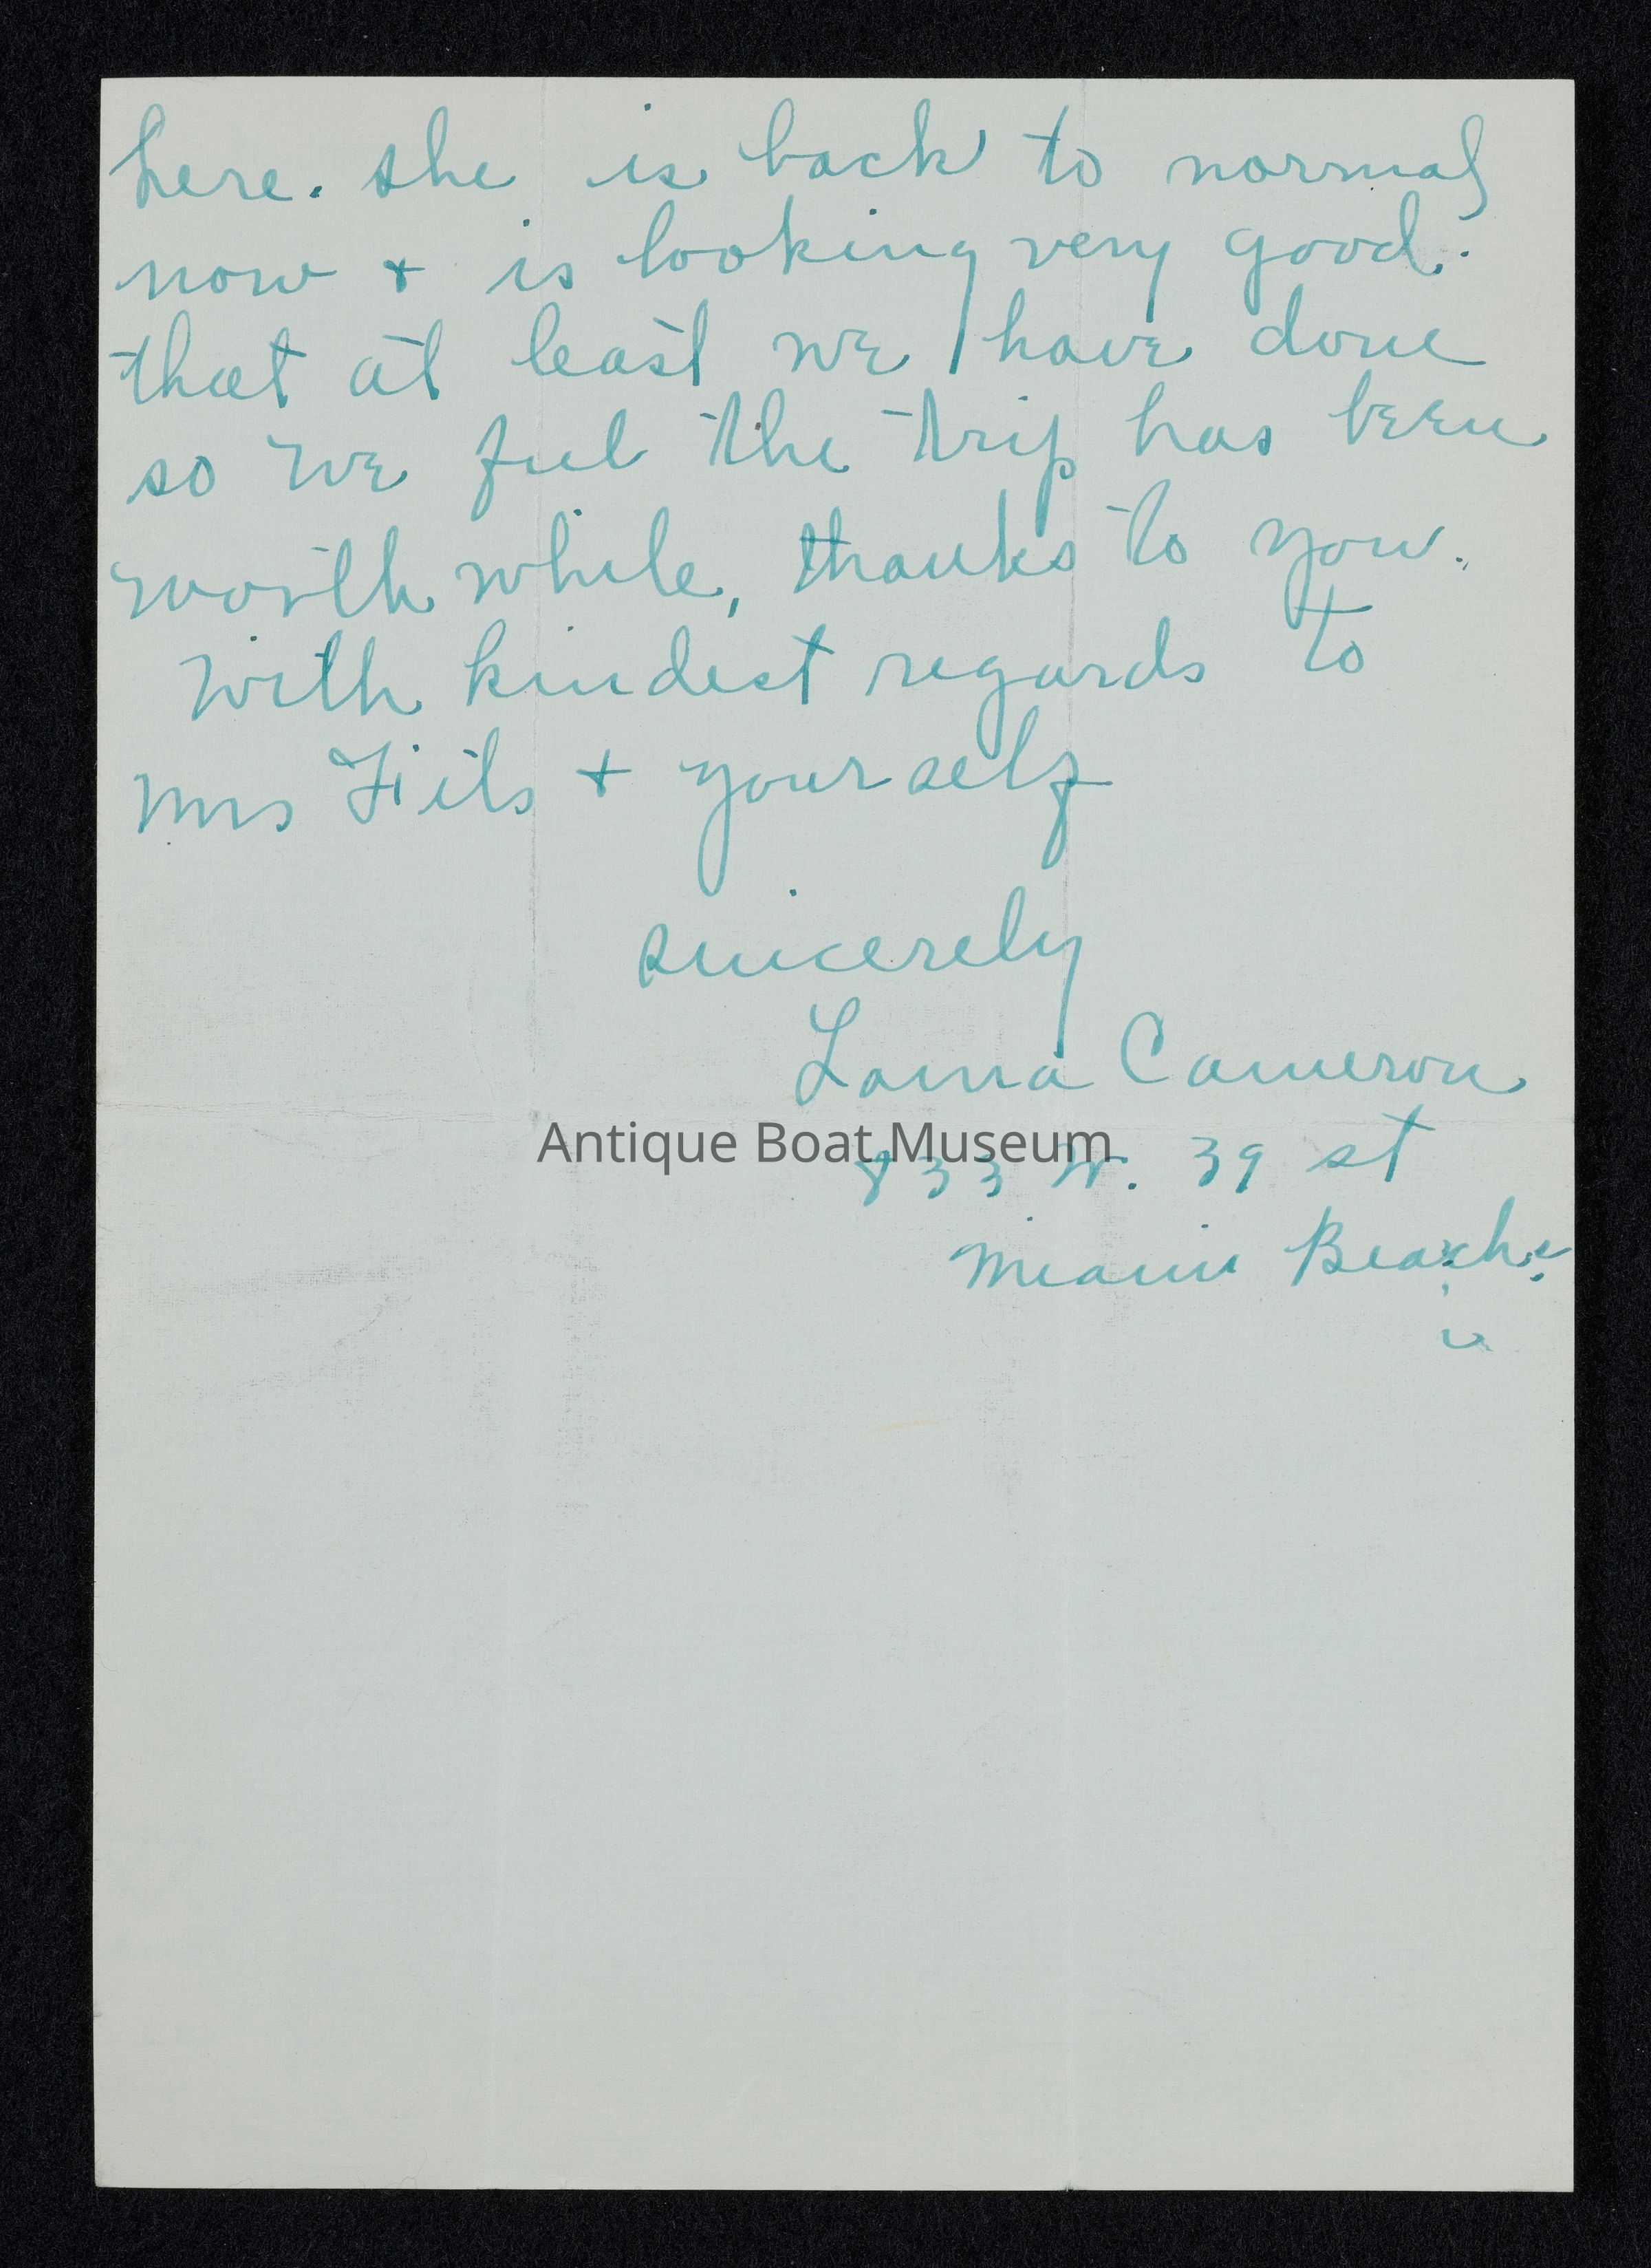 here. she is back to normal
now + is looking very good.
that at least we have done
so we feel the trip has been
worth while, thanks to you.
with kindest regards to
Mrs Fiils + yourself
sincerely
Lorna Cameron
Antique Boat Museum
833 W. 39 st
Miami Beach